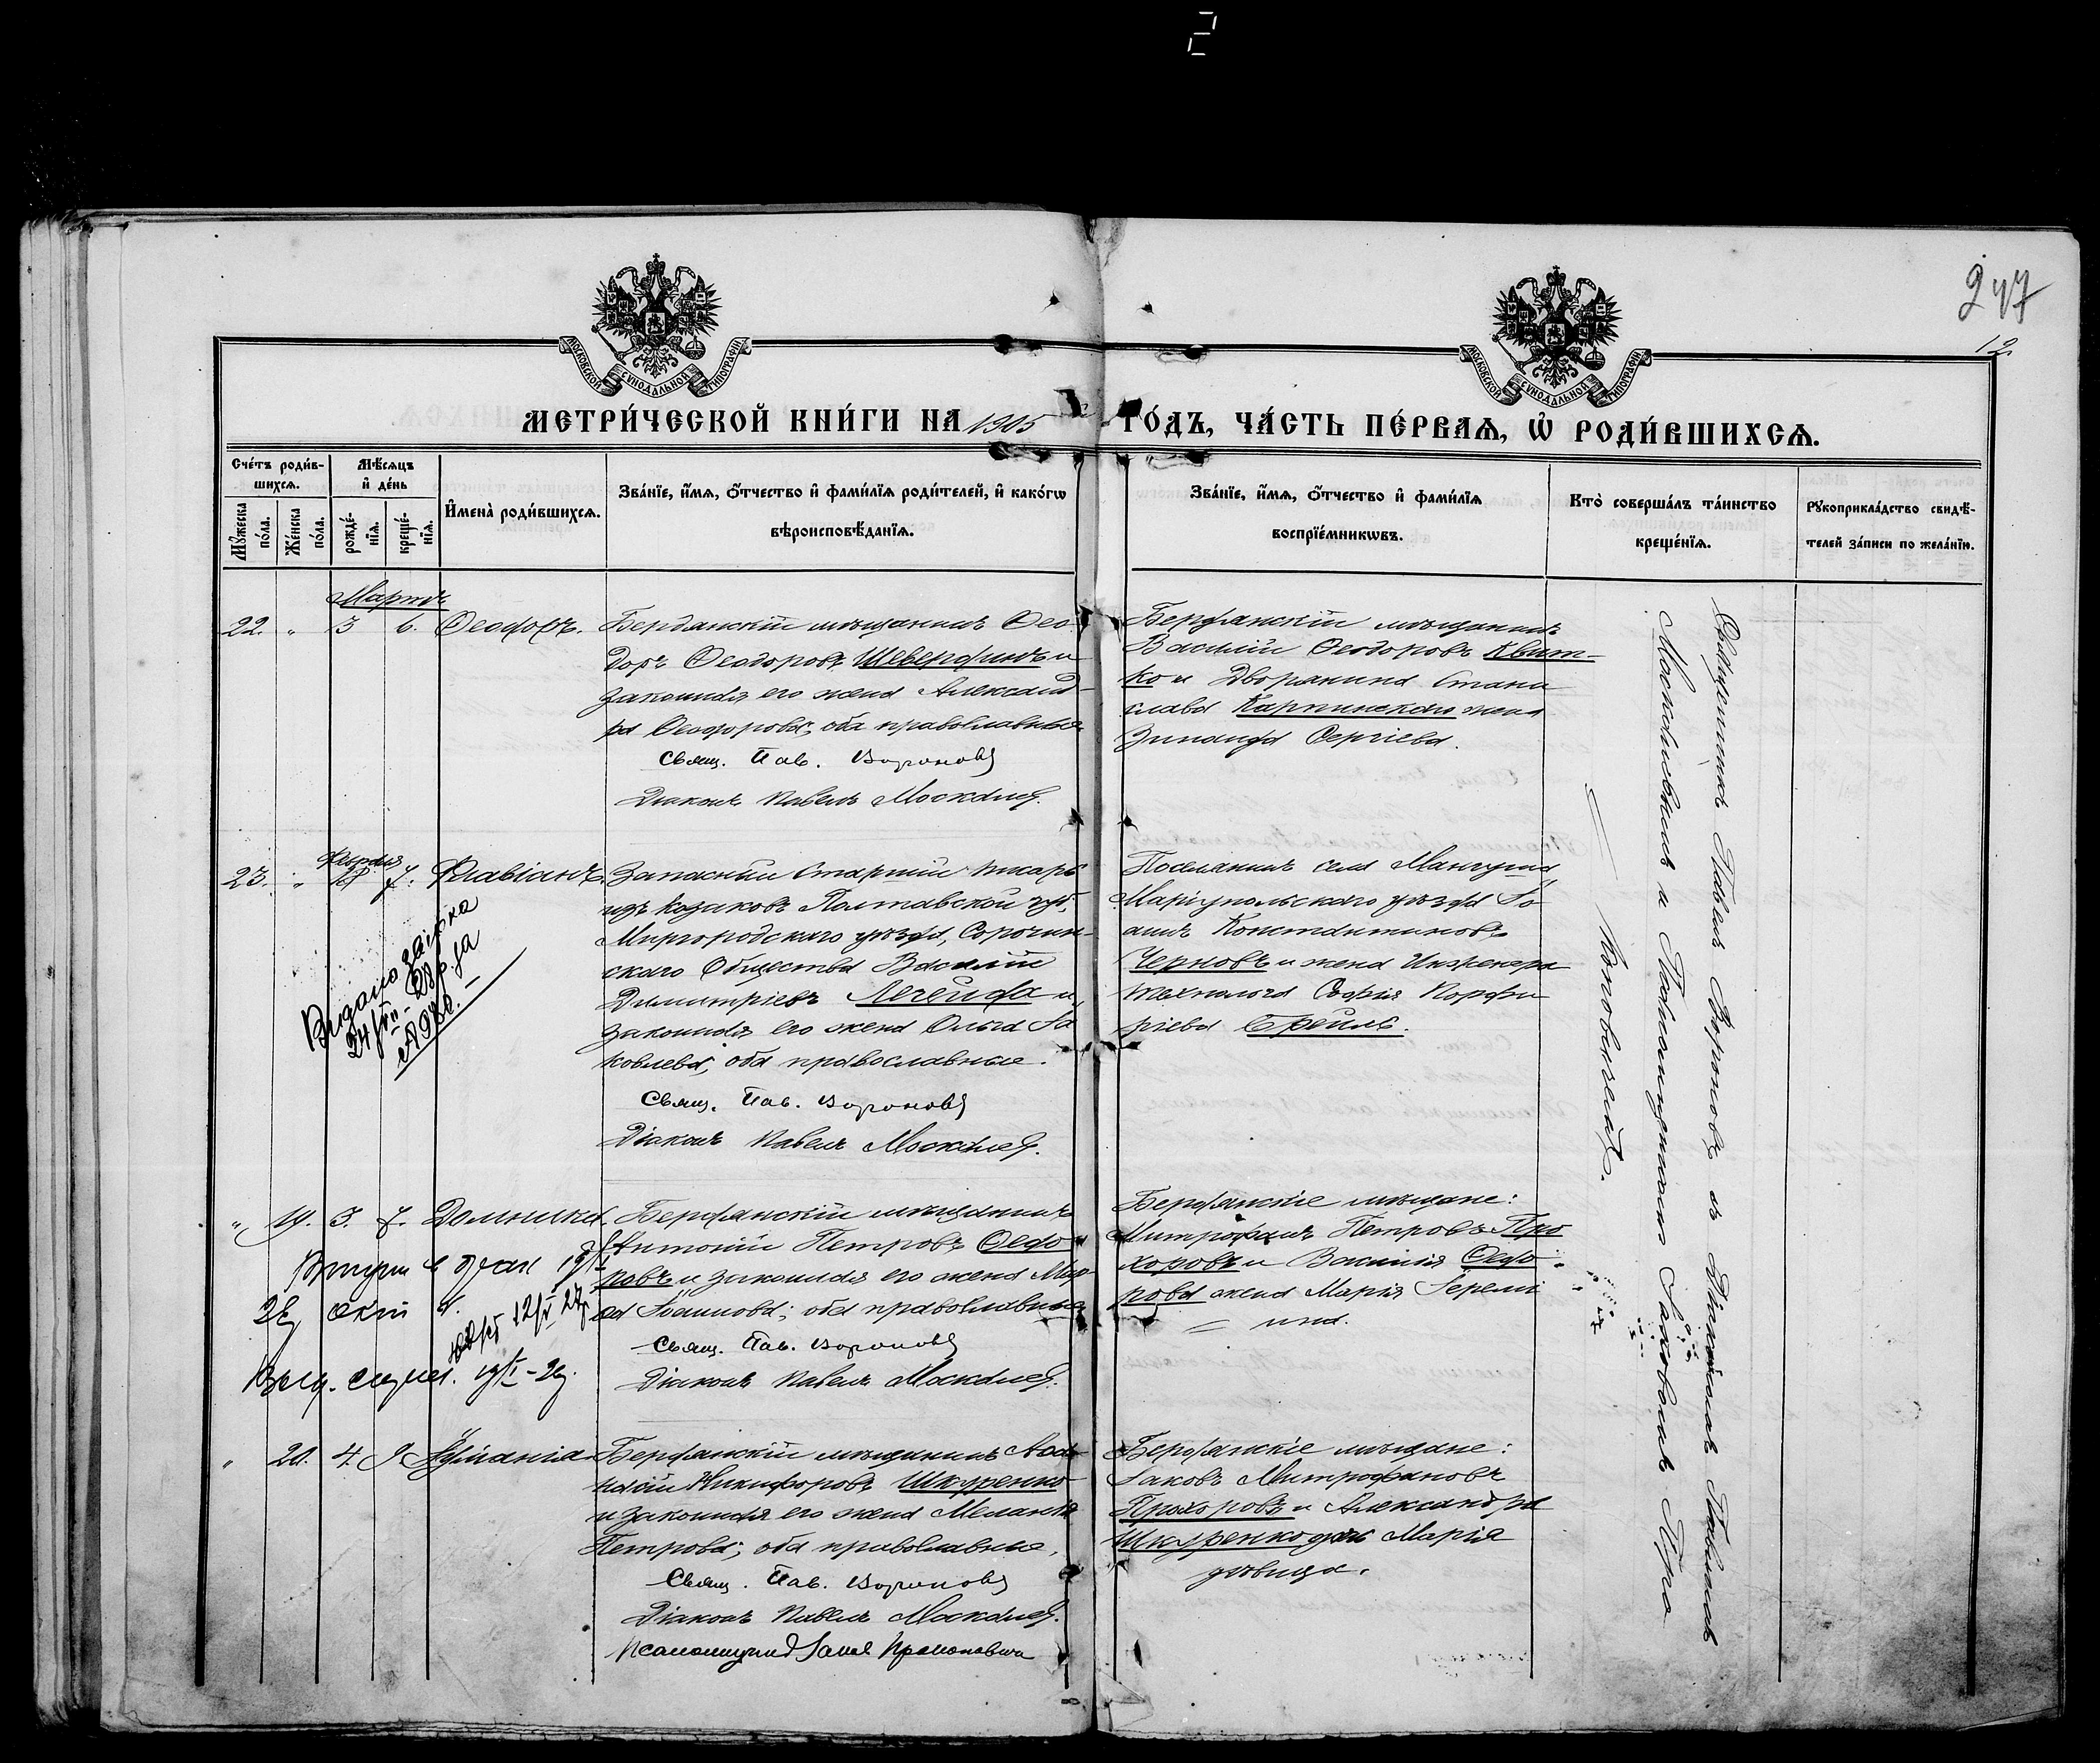 2
247
12.
МОСКОВСКОЙ СѴНОДАЛЬНОЙ ТИПОГРАФІИ
МОСКОВСКОЙ СѴНОДАЛЬНОЙ ТИПОГРАФІИ
МЕТРИ́ЧЕСКОЙ КНИ́ГИ НА 1905 ГО́ДЪ, ЧА́СТЬ ПЕ́РВАѦ, Ѡ҆ РОДИ́ВШИХСѦ.
Сче́тъ роди́в-
шихсѧ.
Мѣ́сѧцъ
и҆ де́нь
Мꙋ́жеска по́ла.
Же́нска по́ла.
рожде́-
нїѧ.
креще́-
нїѧ.
И҆мена̀ роди́вшихсѧ.
Зва́нїе, и҆́мѧ, ѻ҆́тчество и҆ фами́лїѧ роди́телей, и҆ како́гѡ
вѣроисповѣ́данїѧ.
Зва́нїе, и҆́мѧ, ѻ҆́тчество и҆ фами́лїѧ
воспрїе́мникѡвъ.
Кто̀ соверша́лъ та́инство
креще́нїѧ.
Рꙋкоприкла́дство свидѣ́-
телей за́писи по жела́нїю.
Мартъ
22. " 3 6. Ѳеофолъ.
Бердянскій мѣщанинъ Ѳео-
доръ Ѳеодоровъ Шевердинъ и
законная его жена Александ-
ра Ѳеодорова; оба православные
Свящ. Пав. Вороновъ
Діаконъ Павелъ Москалев.
Бердянскій мѣщанинъ
Василій Ѳеодоровъ Квит-
ко и Дворянина Стани
слава Карпинскаго жена
Зинаида Сергіева.
Февраля
23. " 18 7. Флавіанъ.
Запасный Старшій писарь
изъ козаковъ Полтавской губ.
Миргородскаго уѣзда, Сорочин-
скаго Общества Василій
Димитріевъ Легейда и
законная его жена Ольга Іа
ковлева; оба православные.
Свящ. Пав. Вороновъ
Діаконъ Павелъ Москалев.
Поселянинъ села Мангуша
Маріупольскаго уѣзда Іо
аннъ Константиновъ
Черновъ и жена Инженера
технолога Софія Порфи
ріева Брейль.
" 19. 3. 7. Домникія
Бердянскій мѣщанинъ
Антоній Петровъ Ѳедо
ровъ и законная его жена Мар-
ѳа Іоаннова; оба православные
Свящ. Пав. Вороновъ
Діаконъ Павелъ Москалев.
Бердянскіе мѣщане:
Митрофанъ Петровъ Про
хоровъ и Василія Ѳедо
рова жена Марія Іеремі
ина.
" 20. 4. 9
Бердянскій мѣщанинъ
Никифоровъ Шкуренко
и законная его жена Меланія
Петрова; оба православные.
Свящ. Пав. Вороновъ
Діаконъ Павелъ Москалев.
Бердянскіе мѣщане:
Іаковъ Митрофановъ
Прохоровъ и Александра
Шкуренко дочь Марія
дѣвица.
Священникъ Павелъ Вороновъ съ Діакономъ Павломъ
Москалевымъ и Псаломщикомъ Іаковомъ Про
коповичемъ.